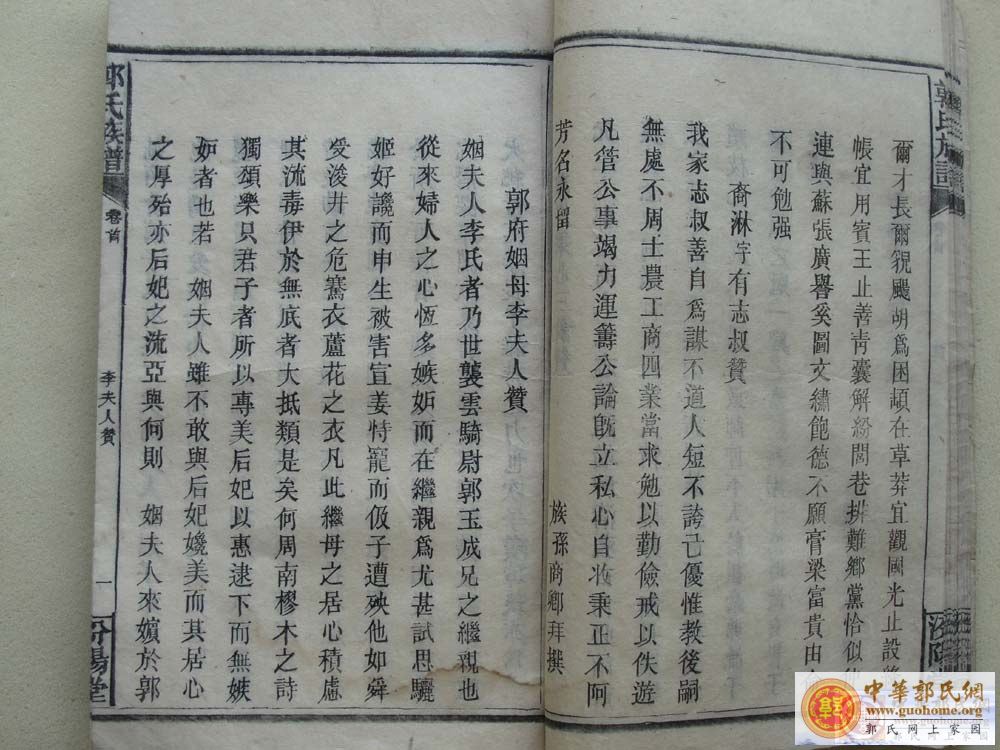 爾才長爾貌颺胡爲困頓在草莽宜觀國光止設
帳宜用賓王止善靑囊解紛閭巷排難鄉黨恰似
連與蘇張廣譽奚圖文繡飽德不願膏粱富貴由
不可勉强
裔淋字有志叔贊
我家志叔善自爲謀不道人短不誇己優惟教後嗣
無處不周士農工商四業當求勉以勤儉戒以佚遊
凡管公事竭力運籌公論旣立私心自收秉正不阿
芳名永留
族孫商鄉拜撰
郭府姻母李夫人贊
姻夫人李氏者乃世襲雲騎尉郭玉成兄之繼親也
從來婦人之心恆多嫉妬而在繼親爲尤甚試思驪
姬好讒而申生被害宣姜恃寵而伋子遭殃他如舜
受浚井之危騫衣蘆花之衣凡此繼母之居心積慮
其流毒伊於無底者大抵類是矣何周南樛木之詩
獨頌樂只君子者所以專美后妃以惠逮下而無嫉
妒者也若 姻夫人雖不敢與后妃媲美而其居心
之厚殆亦后妃之流亞與何則 姻夫人來嬪於郭
郭氏族譜
卷首
李夫人贊
一
汾陽堂
郭氏族譜
汾陽
中華郭氏網
www.guohome.org
郭氏网上家园